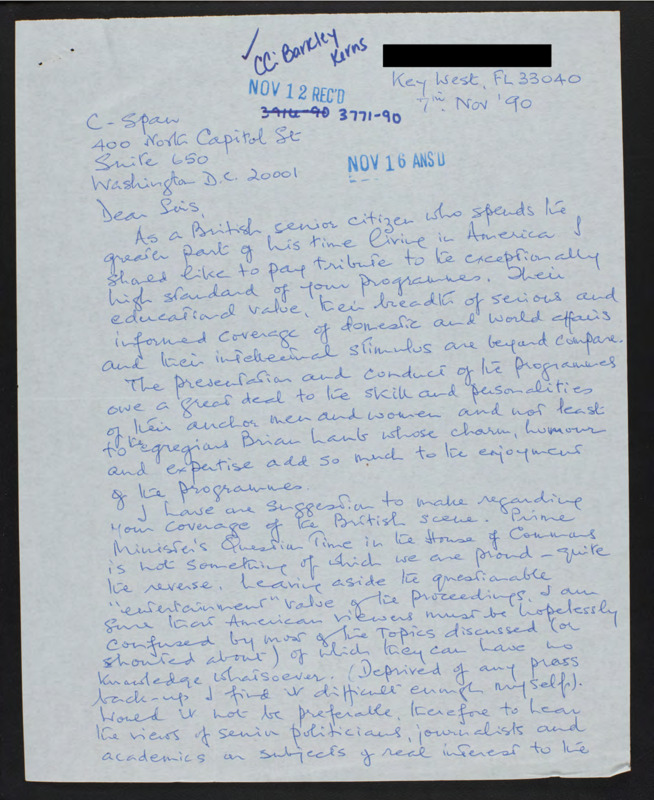 ✓ CC: Barkley
Kerns
NOV 12 REC'D
3916-90 3771-90
Key West, FL 33040
7th Nov '90
C-Span
400 North Capitol St
Suite 650
Washington D.C. 20001
NOV 16 ANS'D
Dear Sirs,
As a British senior citizen who spends the
greater part of his time living in America I
should like to pay tribute to the exceptionally
high standard of your programmes. Their
educational value, their breadth of serious and
informed coverage of domestic and world affairs
and their intellectual stimulus are beyond compare.
The presentation and conduct of the programmes
owe a great deal to the skill and personalities
of their anchor men and women and not least
to the egregious Brian Lamb whose charm, humour
and expertise add so much to the enjoyment
of the programmes.
I have one suggestion to make regarding
your coverage of the British scene. Prime
Minister's Question Time in the House of Commons
is not something of which we are proud - quite
the reverse. Leaving aside the questionable
"entertainment" value of the proceedings, I am
sure that American viewers must be hopelessly
confused by most of the topics discussed (or
shouted about) of which they can have no
knowledge whatsoever. (Deprived of any press
back-up I find it difficult enough myself).
Would it not be preferable, therefore to hear
the views of senior politicians, journalists and
academics on subjects of real interest to the